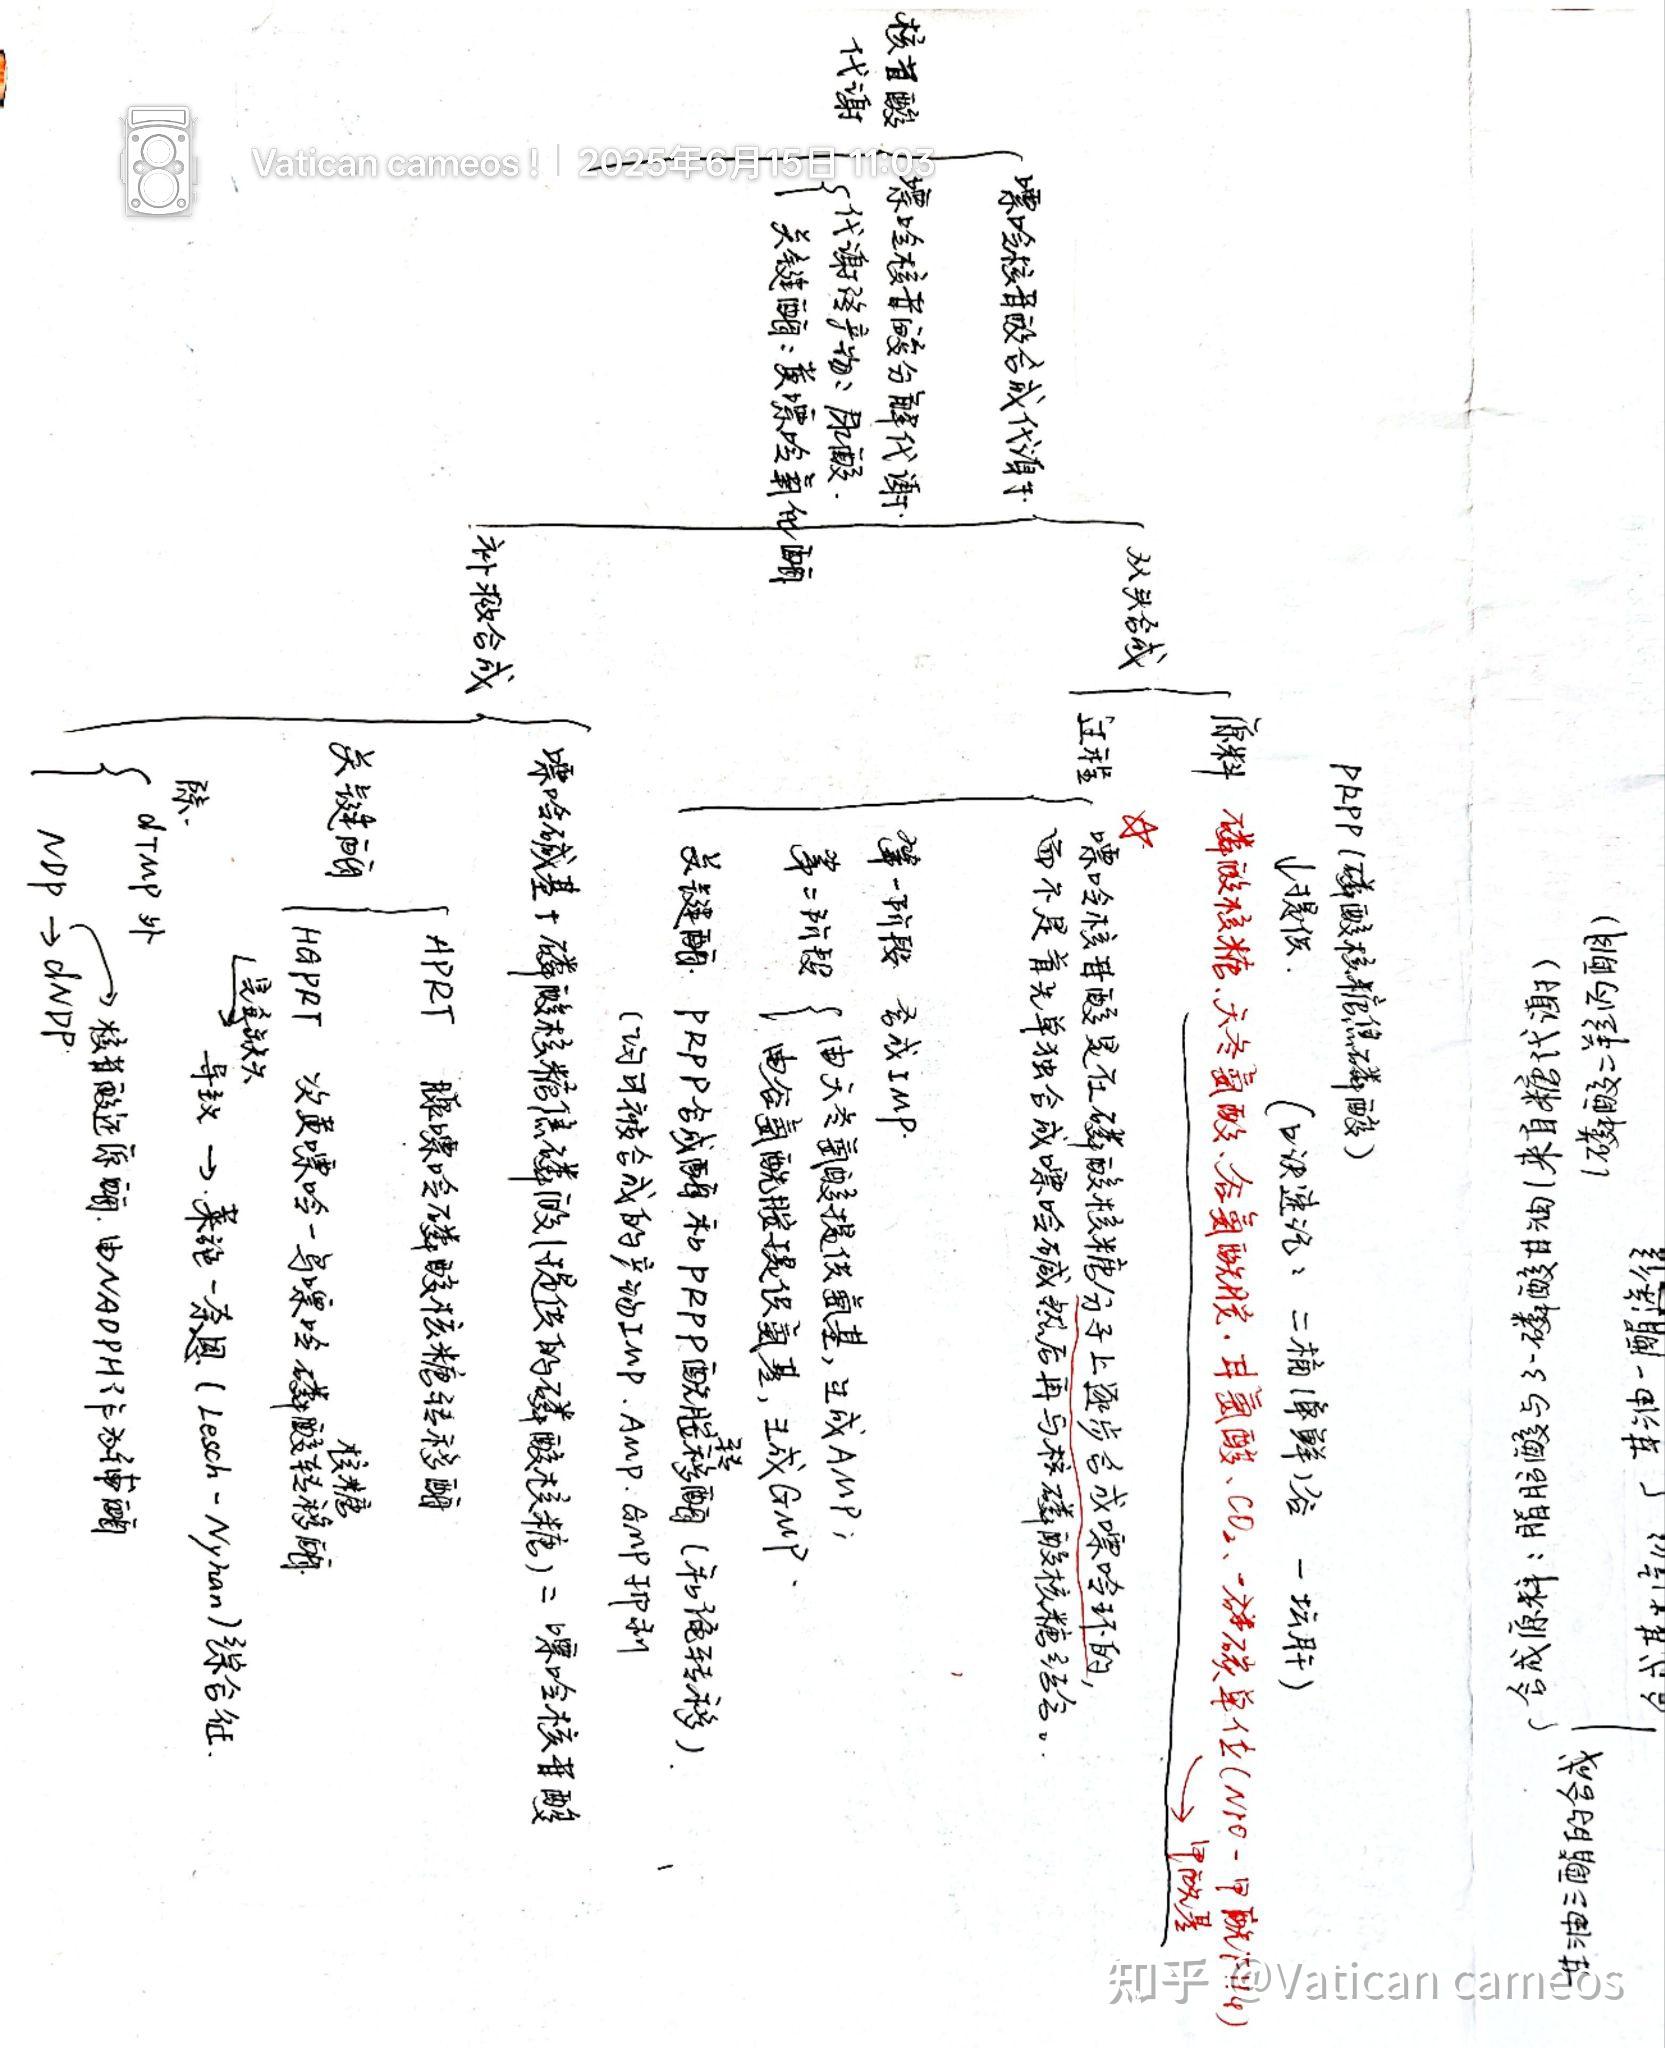 Vatican cameos! | 2025年6月15日 11:03
核苷酸
代谢
嘌呤核苷酸合成代谢
嘌呤核苷酸分解代谢
代谢终产物:尿酸.
关键酶:黄嘌呤氧化酶
从头合成
补救合成
PRPP(磷酸核糖焦磷酸)
提供.
(口诀速记:二楠 谷 一坛肝)
原料 磷酸核糖、天冬氨酸、谷氨酰胺.甘氨酸、CO₂、一碳单位(N10-甲酰
甲酰基
过程
嘌呤核苷酸是在磷酸核糖分子上逐步合成嘌呤环的,
而不是首先单独合成嘌呤碱然后再与核磷酸核糖结合。
第一阶段 合成IMP.
第二阶段
由天冬氨酸提供氨基,生成AMP;
由谷氨酰胺提供氨基,生成GMP.
关键酶 PRPP合成酶和PRPP酰胺转移酶(和 转移)
(均可被合成的产物IMP.AMP.GMP抑制
嘌呤碱基+磷酸核糖焦磷酸(提供的磷酸核糖)=嘌呤核苷酸
关键酶
APRT 腺嘌呤磷酸核糖转移酶
HGPRT 次黄嘌呤-鸟嘌呤磷酸核糖转移酶.
完全缺失
导致→莱施-奈恩(Lesch-Nyhan)综合征.
除.
dTMP外
NDP→dNDP.
核苷酸还原酶.由NADPH作为辅酶
合成原料:脂肪酸与3-磷酸甘油(来自糖代谢)
(磷酸二羟丙酮)
甘油三酯的合成
甘油一酯途径
知乎 @Vatican cameos